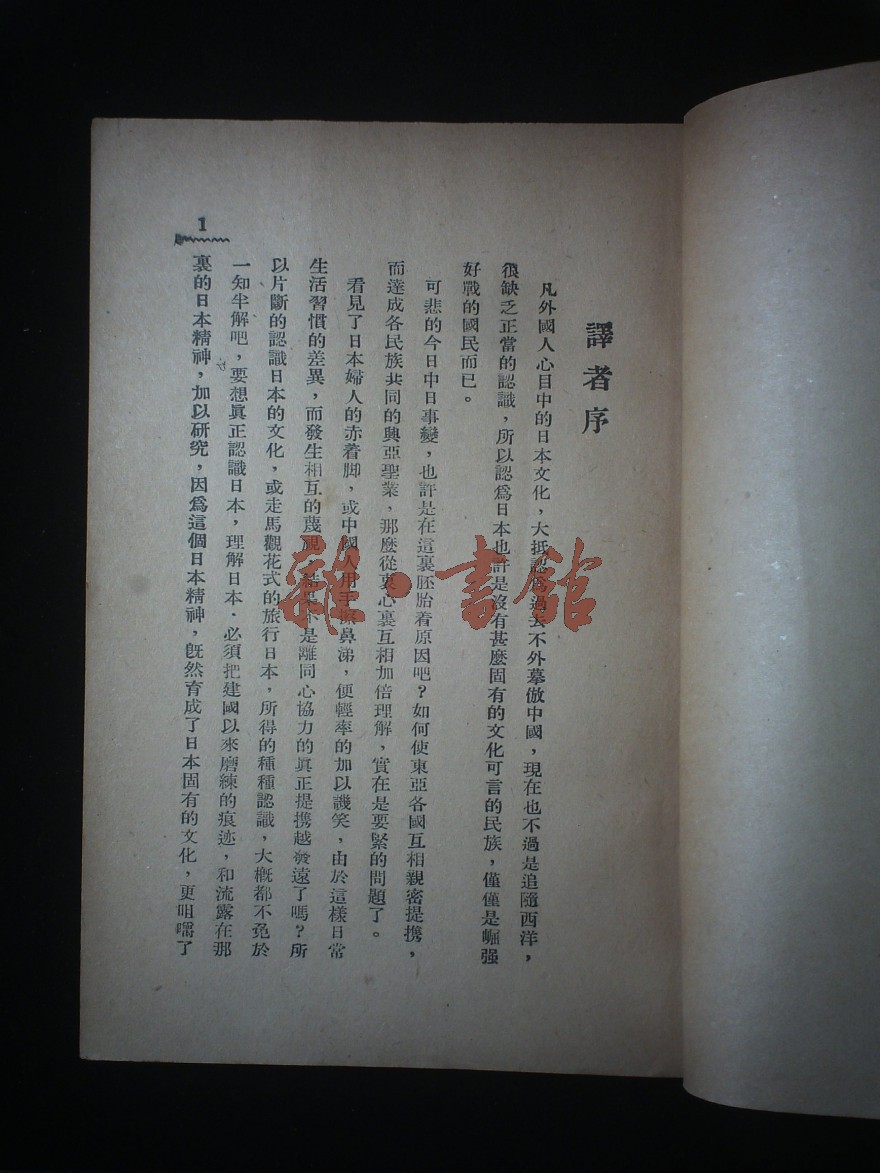 譯者序
凡外國人心目中的日本文化，大抵認爲過去不外摹倣中國，現在也不過是追隨西洋，
很缺乏正當的認識，所以認爲日本也許是沒有甚麼固有的文化可言的民族，僅僅是崛强
好戰的國民而已。
可悲的今日中日事變，也許是在這裏胚胎着原因吧？如何使東亞各國互相親密提携，
而達成各民族共同的興亞聖業，那麼從衷心裏互相加倍理解，實在是要緊的問題了。
看見了日本婦人的赤着脚，或中國人用手擦鼻涕，便輕率的加以譏笑，由於這樣日常
生活習慣的差異，而發生相互的蔑視，結果不是離同心協力的眞正提携越發遠了嗎？所
以片斷的認識日本的文化，或走馬觀花式的旅行日本，所得的種種認識，大槪都不免於
一知半解吧，要想眞正認識日本，理解日本．必須把建國以來磨練的痕迹，和流露在那
裏的日本精神，加以研究，因爲這個日本精神，旣然育成了日本固有的文化，更咀嚼了
1
雜·書館